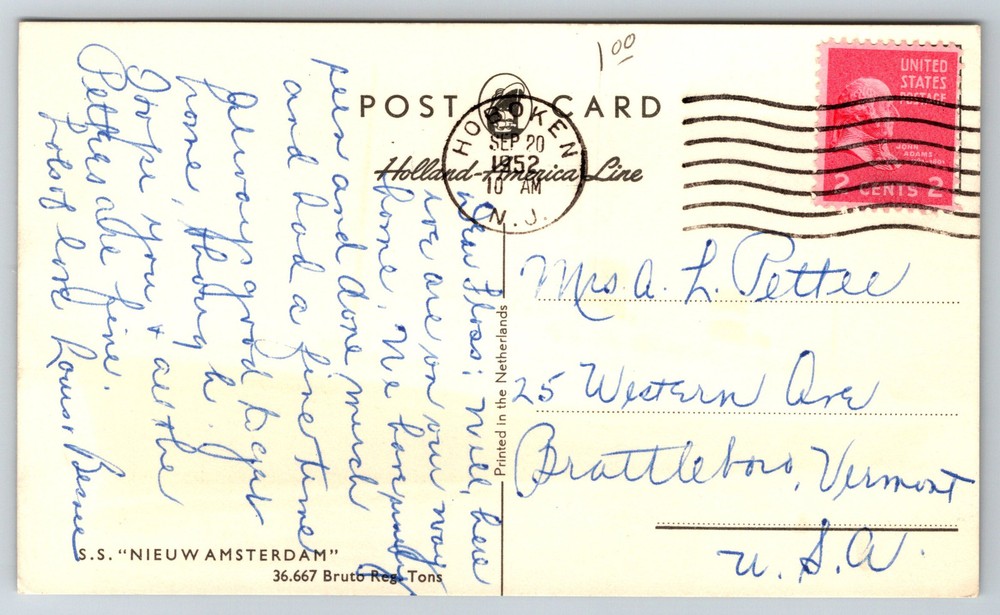 1 00
POST CARD
Holland-America Line
HOBOKEN
SEP 20
1952
10 AM
N.J.
UNITED
STATES
POSTAGE
JOHN
ADAMS
2 CENTS 2
Dear Floss; Well, here
we are on our way
home. We have
seen and done much
and had a fine time
Always good to get
home, though.
I hope you & all the
Pettees are fine.
Lots of love Louis & Bessie
Mrs. A. L. Pettee
25 Western Ave
Brattleboro, Vermont
U.S.A.
Printed in the Netherlands
S.S. "NIEUW AMSTERDAM"
36.667 Bruto Reg. Tons